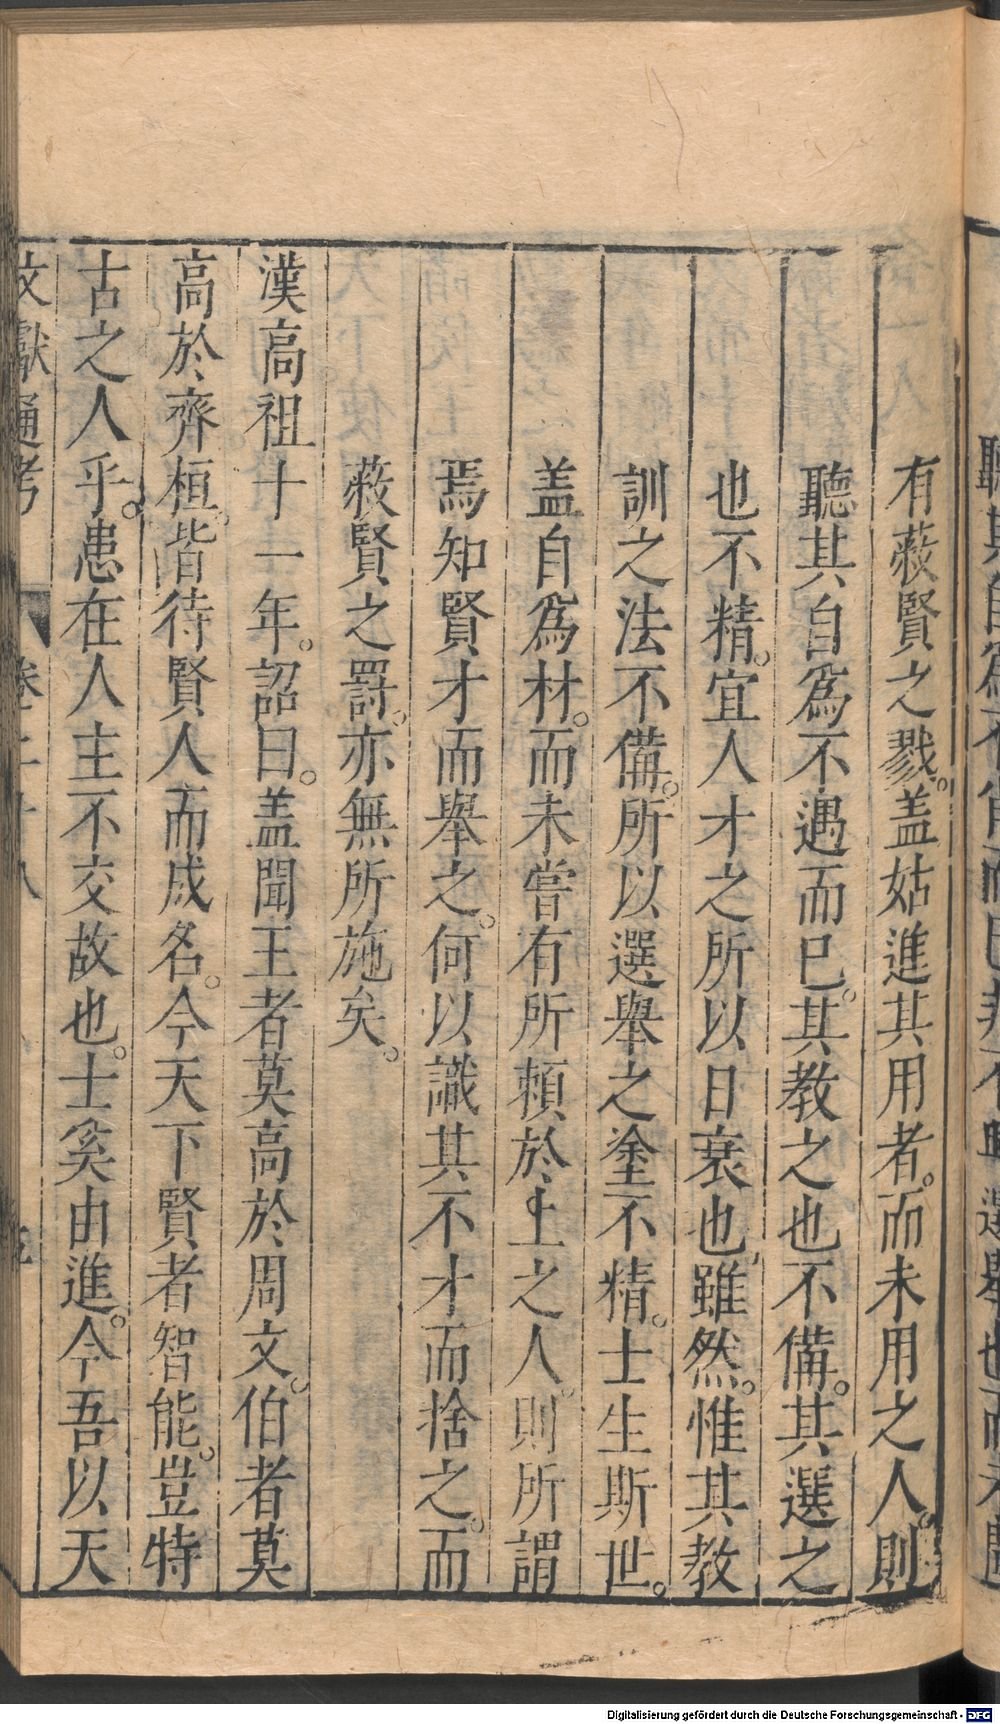 有蔽賢之戮。盖姑進其用者。而未用之人。則
聽其自爲不遇而已。其教之也不備。其選之
也不精。宜人才之所以日衰也。雖然。惟其教
訓之法不備。所以選舉之塗不精。士生斯世。
盖自爲材。而未嘗有所頼於上之人。則所謂
焉知賢才而舉之。何以識其不才而捨之。而
蔽賢之罰。亦無所施矣。
漢高祖十一年。詔曰。盖聞王者莫高於周文。伯者莫
高於齊桓。皆待賢人而成名。今天下賢者智能。豈特
古之人乎。患在人主不交故也。士奚由進。今吾以天
文獻通考 卷二十八
Digitalisierung gefördert durch die Deutsche Forschungsgemeinschaft - DFG